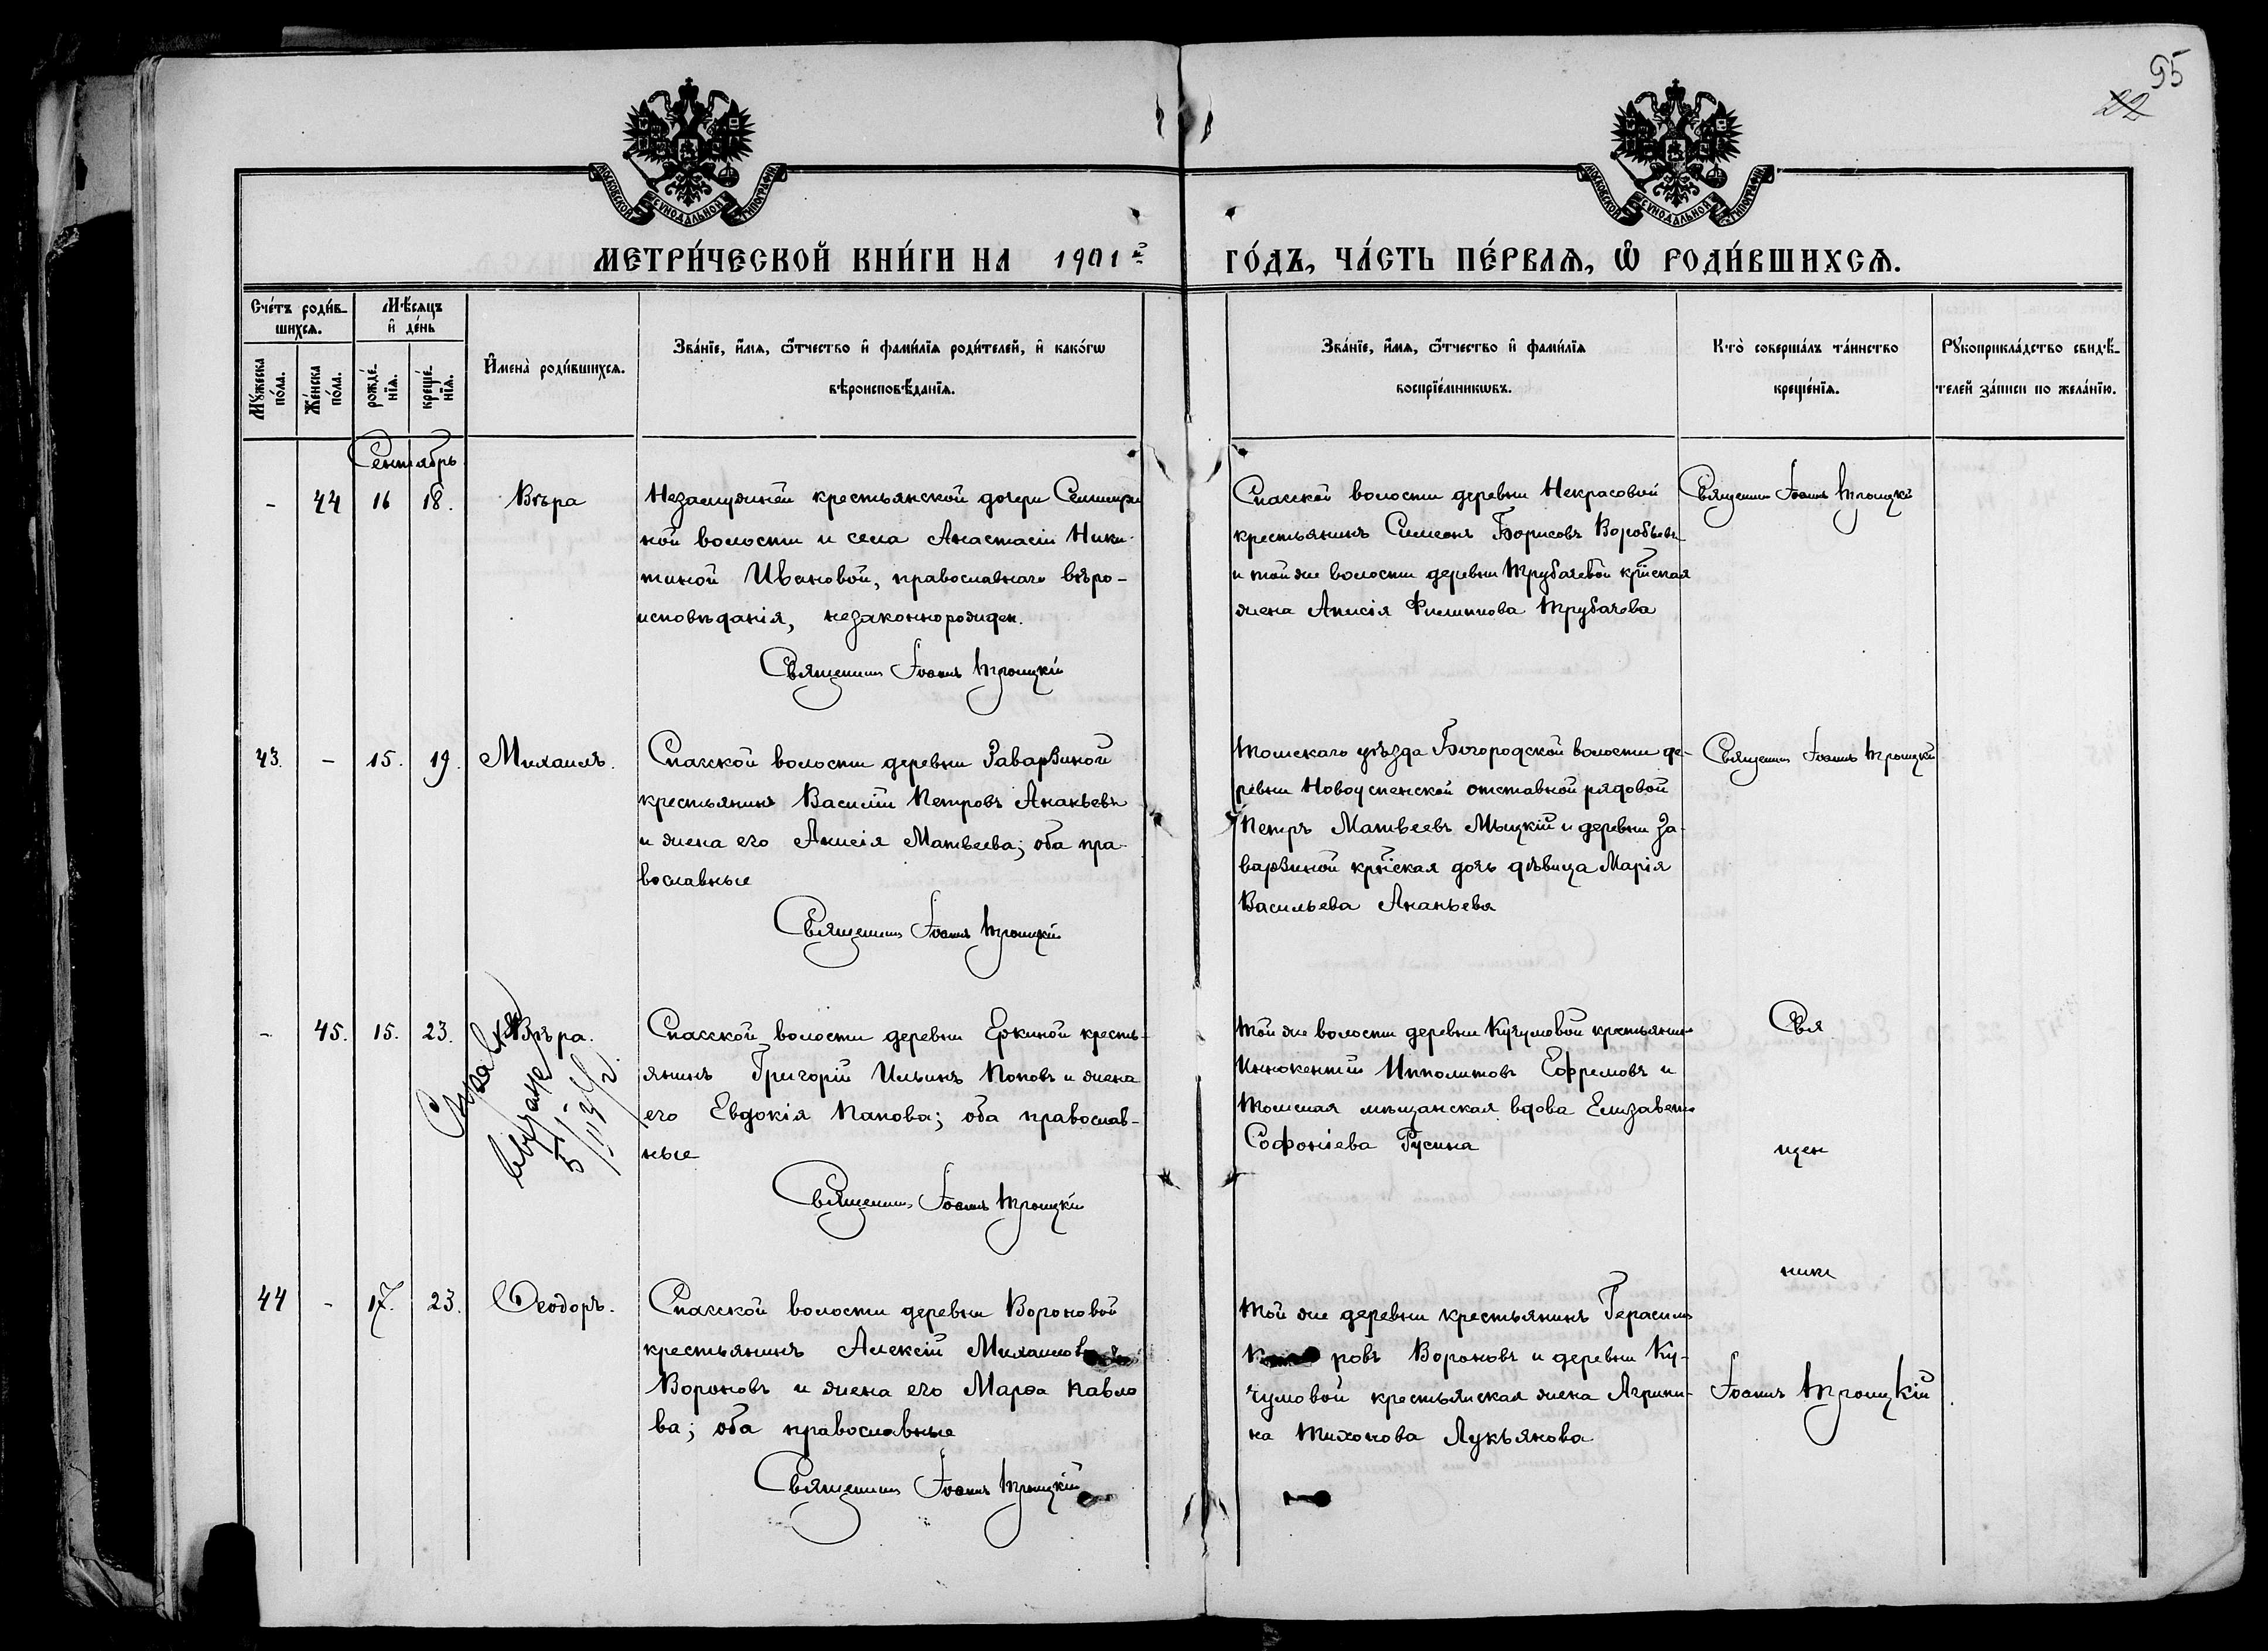 95
22
МОСКОВСКОЙ СѴНОДАЛЬНОЙ ТИПОГРАФІИ
МОСКОВСКОЙ СѴНОДАЛЬНОЙ ТИПОГРАФІИ
МЕТРИ́ЧЕСКОЙ КНИ́ГИ НА 1901й ГО́ДЪ, ЧА́СТЬ ПЕ́РВАѦ, Ѡ҆ РОДИ́ВШИХСѦ.
Сче́тъ роди́в-
шихсѧ.
Мꙋ́жеска
по́ла.
Же́нска
по́ла.
Мѣ́сѧцъ
и҆ де́нь
рожде́-
нїѧ.
креще́-
нїѧ.
И҆мена̀ роди́вшихсѧ.
Зва́нїе, и҆́мѧ, ѻ҆́тчество и҆ фами́лїѧ роди́телей, и҆ како́гѡ
вѣроисповѣ́данїѧ.
Зва́нїе, и҆́мѧ, ѻ҆́тчество и҆ фами́лїѧ
воспрїе́мникѡвъ.
Кто̀ соверша́лъ та́инство
креще́нїѧ.
Рꙋкоприкла́дство свидѣ́-
телей за́писи по жела́нїю.
Сентябрь
- 44 16 18. Вѣра
Незамужней крестьянской дочери
ной волости и села Анастасіи Ники-
тиной Ивановой, православнаго вѣро-
исповѣданія, незаконнорожден.
Священникъ Іоаннъ Троицкій
Спасской волости деревни Некрасовой
крестьянинъ Симеонъ Борисовъ Воробьевъ
и той же волости деревни Трубачевой кр҃нская
жена Анисія Филиппова Трубачева
Священникъ Іоаннъ Троицкій
43. - 15. 19. Михаилъ.
Спасской волости деревни Заварзиной
крестьянинъ Василій Петровъ Ананьевъ
и жена его Анисія Матвеева; оба пра-
вославные
Священникъ Іоаннъ Троицкій
Томскаго уѣзда Богородской волости де-
ревни Новоуспенской отставной рядовой
Петръ Матвеевъ Мыцкій и деревни За-
варзиной кр҃нская дочь дѣвица Марія
Васильева Ананьева
Священникъ Іоаннъ Троицкій
- 45. 15. 23. Вѣра.
Спасской волости деревни Еркиной кресть-
янинъ Григорій Ильинъ Поповъ и жена
его Евдокія Папова; оба православ-
ные
Священникъ Іоаннъ Троицкій
Той же волости деревни Кучумовой крестьянинъ
Иннокентій Ипполитовъ Ефремовъ и
Томская мѣщанская вдова Елизавета
Софоніева Русина
Свя
щен
никъ
44 - 17. 23. Ѳеодоръ.
Спасской волости деревни Вороновой
крестьянинъ Алексій Михаилов
Вороновъ и жена его Марѳа Павло
ва; оба православные
Священникъ Іоаннъ Троицкій
Той же деревни крестьянинъ Герасимъ
ровъ Вороновъ и деревни Ку-
чумовой крестьянская жена Агрипи-
на Тихонова Лукьянова
Іоаннъ Троицкій